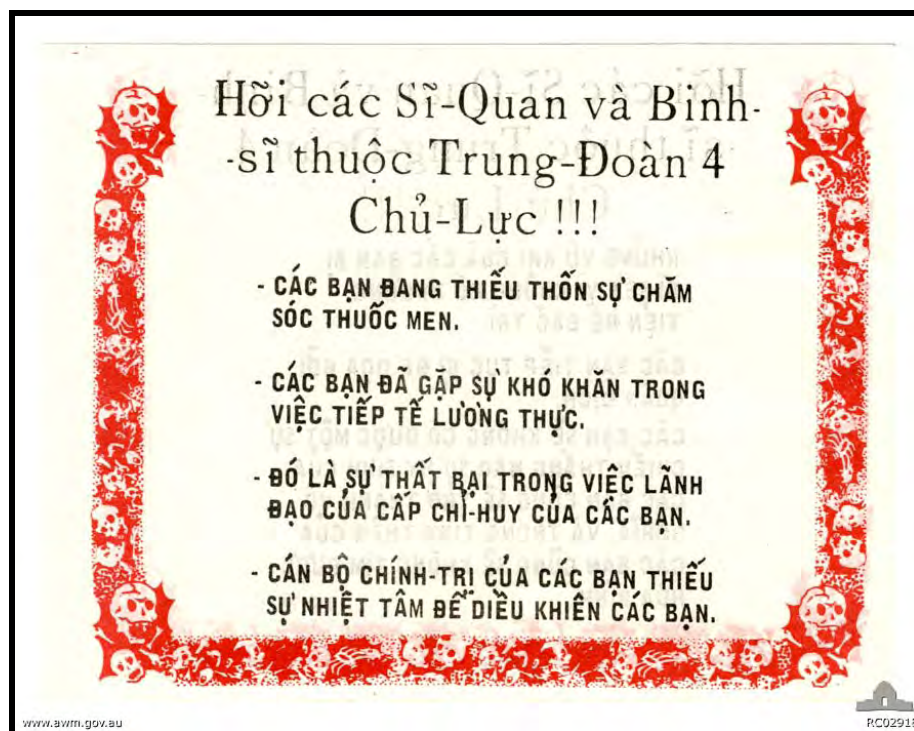 Hỡi các Sĩ-Quan và Binh-
-sĩ thuộc Trung-Đoàn 4
Chủ-Lực !!!
- CÁC BẠN ĐANG THIẾU THỐN SỰ CHĂM
SÓC THUỐC MEN.
- CÁC BẠN ĐÃ GẶP SỰ KHÓ KHĂN TRONG
VIỆC TIẾP TẾ LƯƠNG THỰC.
- ĐÓ LÀ SỰ THẤT BẠI TRONG VIỆC LÃNH
ĐẠO CỦA CẤP CHỈ-HUY CỦA CÁC BẠN.
- CÁN BỘ CHÍNH-TRỊ CỦA CÁC BẠN THIẾU
SỰ NHIỆT TÂM ĐỂ DIỀU KHIỂN CÁC BẠN.
www.awm.gov.au
RC02918